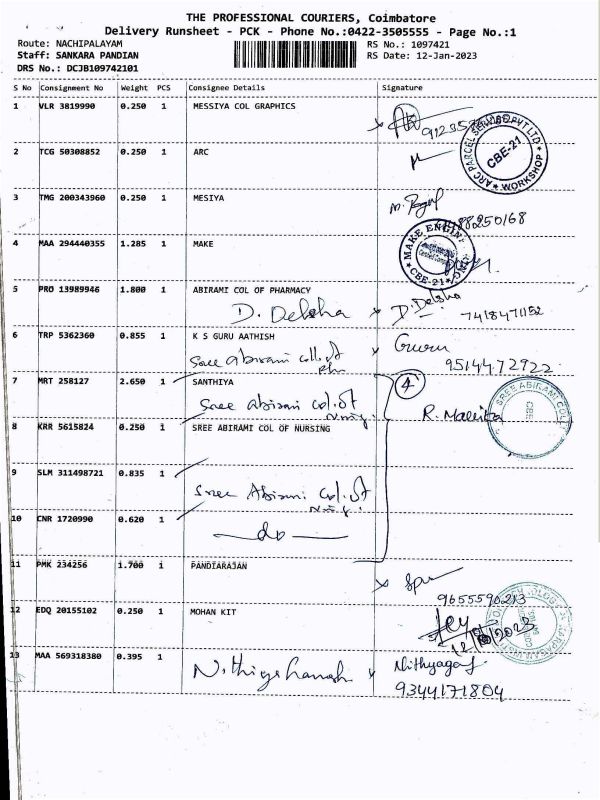 THE PROFESSIONAL COURIERS, Coimbatore
Delivery Runsheet - PCK - Phone No.:0422-3505555 - Page No.:1
Route: NACHIPALAYAM
RS No.: 1097421
Staff: SANKARA PANDIAN
RS Date: 12-Jan-2023
DRS No.: DCJB109742101
S No Consignment No Weight PCS Consignee Details Signature
1 VLR 3819990 0.250 1 MESSIYA COL GRAPHICS
2 TCG 50308852 0.250 1 ARC
ARC PARCEL SERVICE PVT LTD
CBE-21
WORKSHOP
3 TMG 200343960 0.250 1 MESIYA
4 MAA 294440355 1.285 1 MAKE
MAKE ENGIN
CBE-21
5 PRO 13989946 1.800 1 ABIRAMI COL OF PHARMACY
D. Delsha x D. Delsha
7418471152
6 TRP 5362360 0.855 1 K S GURU AATHISH
Sree Abirami Coll. of x Guru
9514472922
7 MRT 258127 2.650 1 SANTHIYA
4
Sree Abirami Col. of
R. Mallika
SREE ABIRAMI COLL
CBE
8 KRR 5615824 0.250 1 SREE ABIRAMI COL OF NURSING
9 SLM 311498721 0.835 1
Sree Abirami Col. of
10 CNR 1720990 0.620 1
do
11 PMK 234256 1.700 1 PANDIARAJAN
9655590213
12 EDQ 20155102 0.250 1 MOHAN KIT
13 MAA 569318380 0.395 1
9344171804